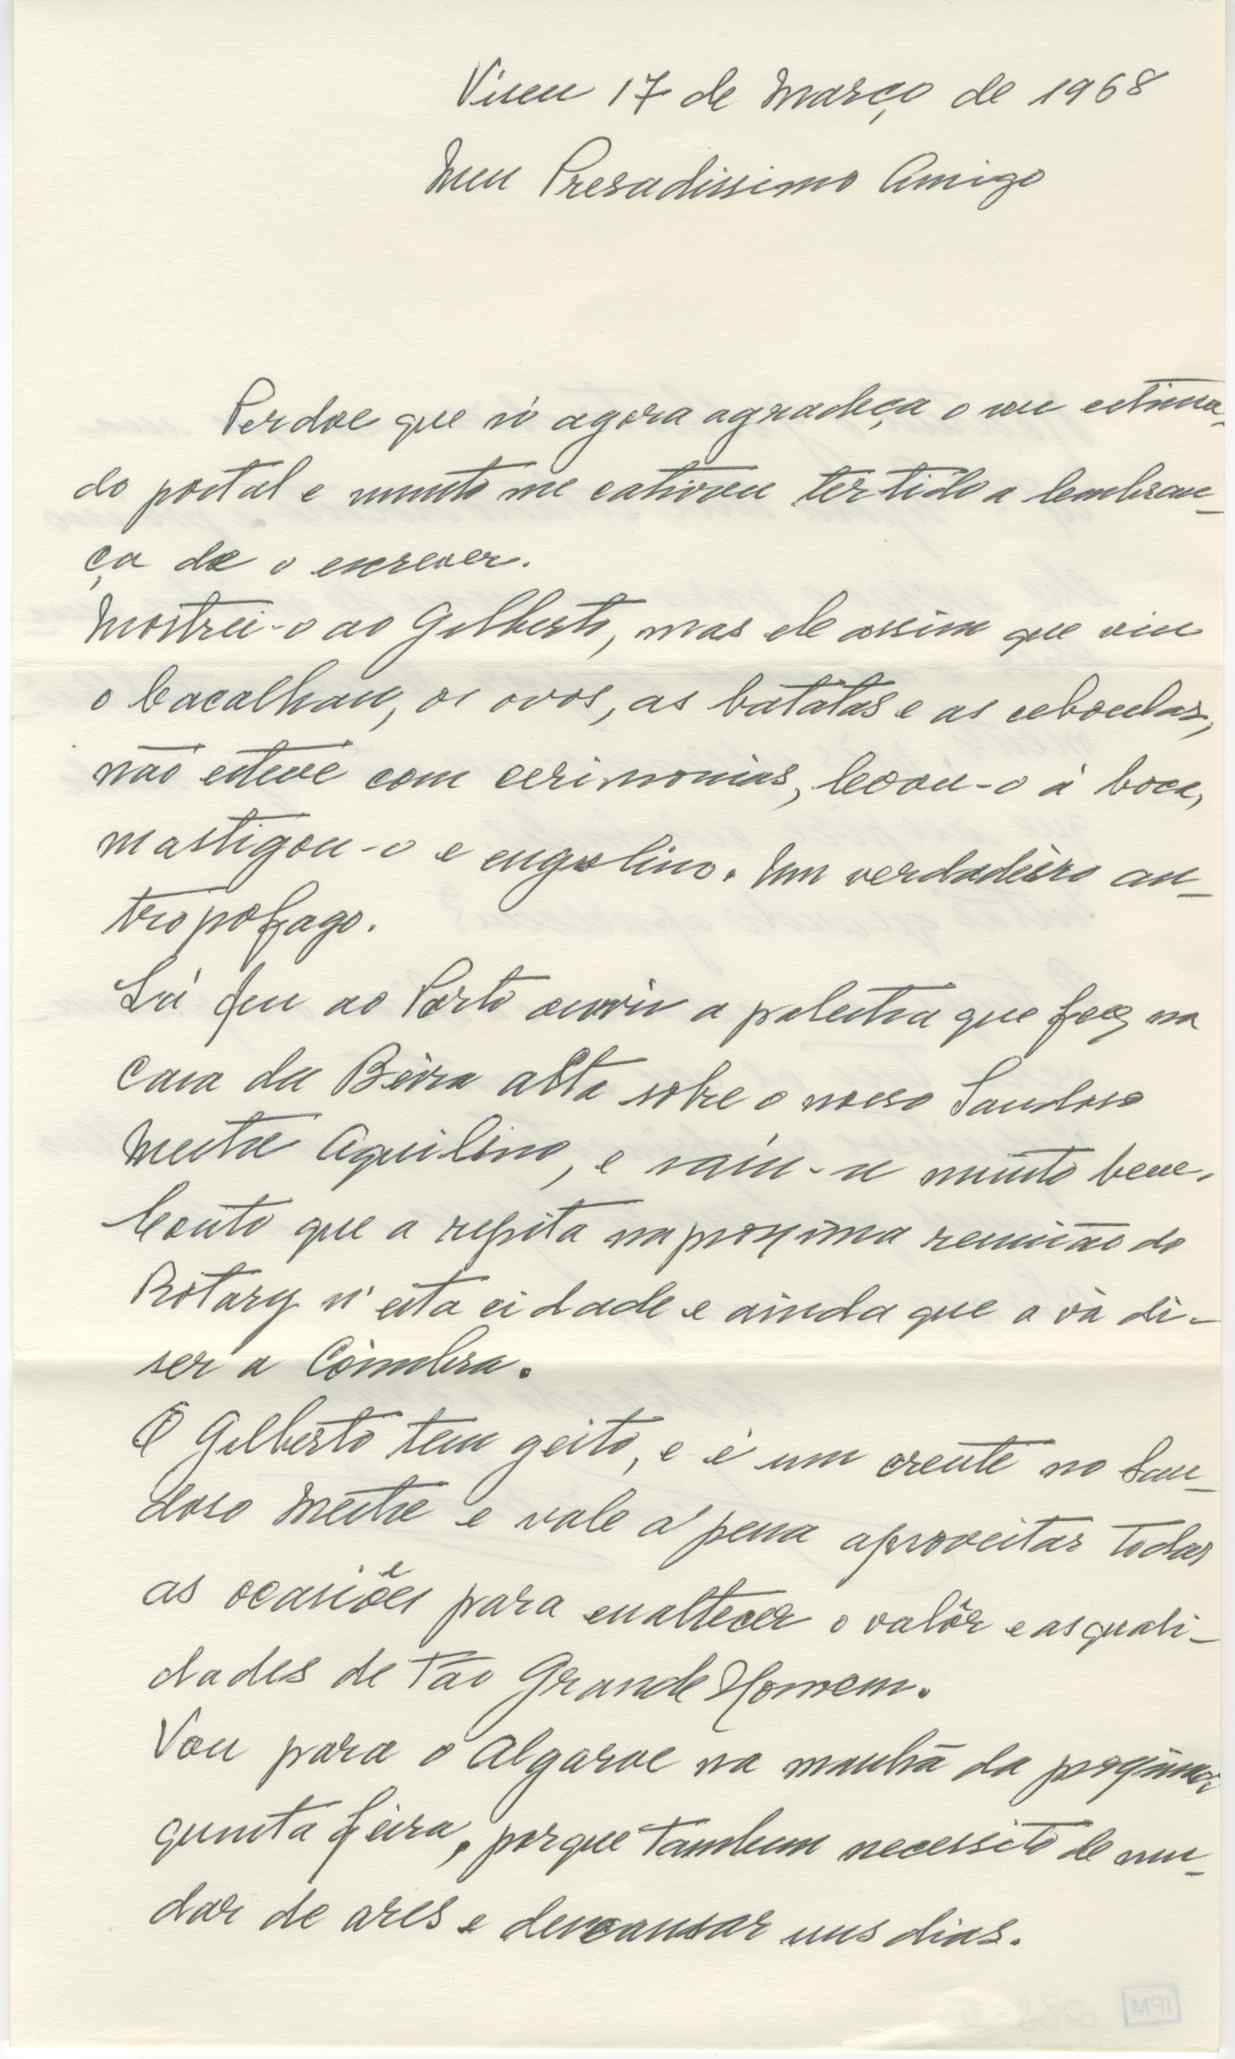 Viseu 17 de Março de 1968
Meu Presadissimo Amigo
Perdoe que só agora agradeça o seu estima-
do postal e muito me cativou ter tido a lembran-
ça de o escrever.
Mostrei-o ao Gilberto, mas ele assim que viu
o bacalhau, os ovos, as batatas e as cebolas,
não esteve com cerimonias, levou-o á boca,
mastigou-o e engolino. Um verdadeiro an-
tropofago.
Lá fui ao Porto ouvir a palestra que fez na
Casa da Beira Alta sobre o nosso Saudoso
Mestre Aquilino, e saiu-se muito bem.
Conto que a repita na proxima reunião do
Rotary n'esta cidade e ainda que a vá di-
ser a Coimbra.
O Gilberto tem geito, e é um crente no Sau-
doso Mestre e vale a pena aproveitar todas
as ocasiões para enaltecer o valôr e as quali-
dades de Tão Grande Homem.
Vou para o Algarve na manhã da proxima
quinta feira, porque tambem necessito de mu-
dar de ares e descansar uns dias.